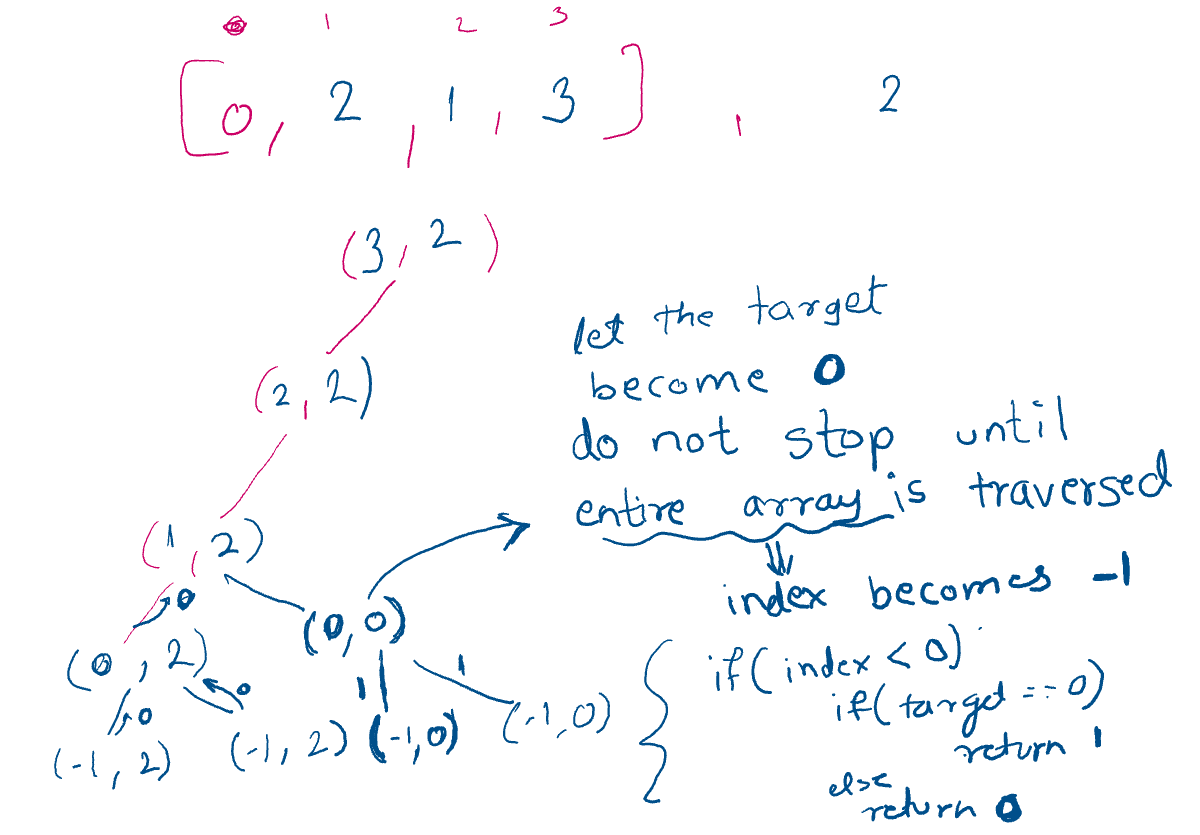 0 1 2 3
[0, 2, 1, 3] , 2
(3, 2)
(2, 2)
(1, 2)
0
(0, 2)
0
0
(-1, 2) (-1, 2)
(0, 0)
1
1
(-1, 0) (-1, 0)
let the target
become 0
do not stop until
entire array is traversed
index becomes -1
if(index < 0)
if(target == 0)
return 1
else
return 0